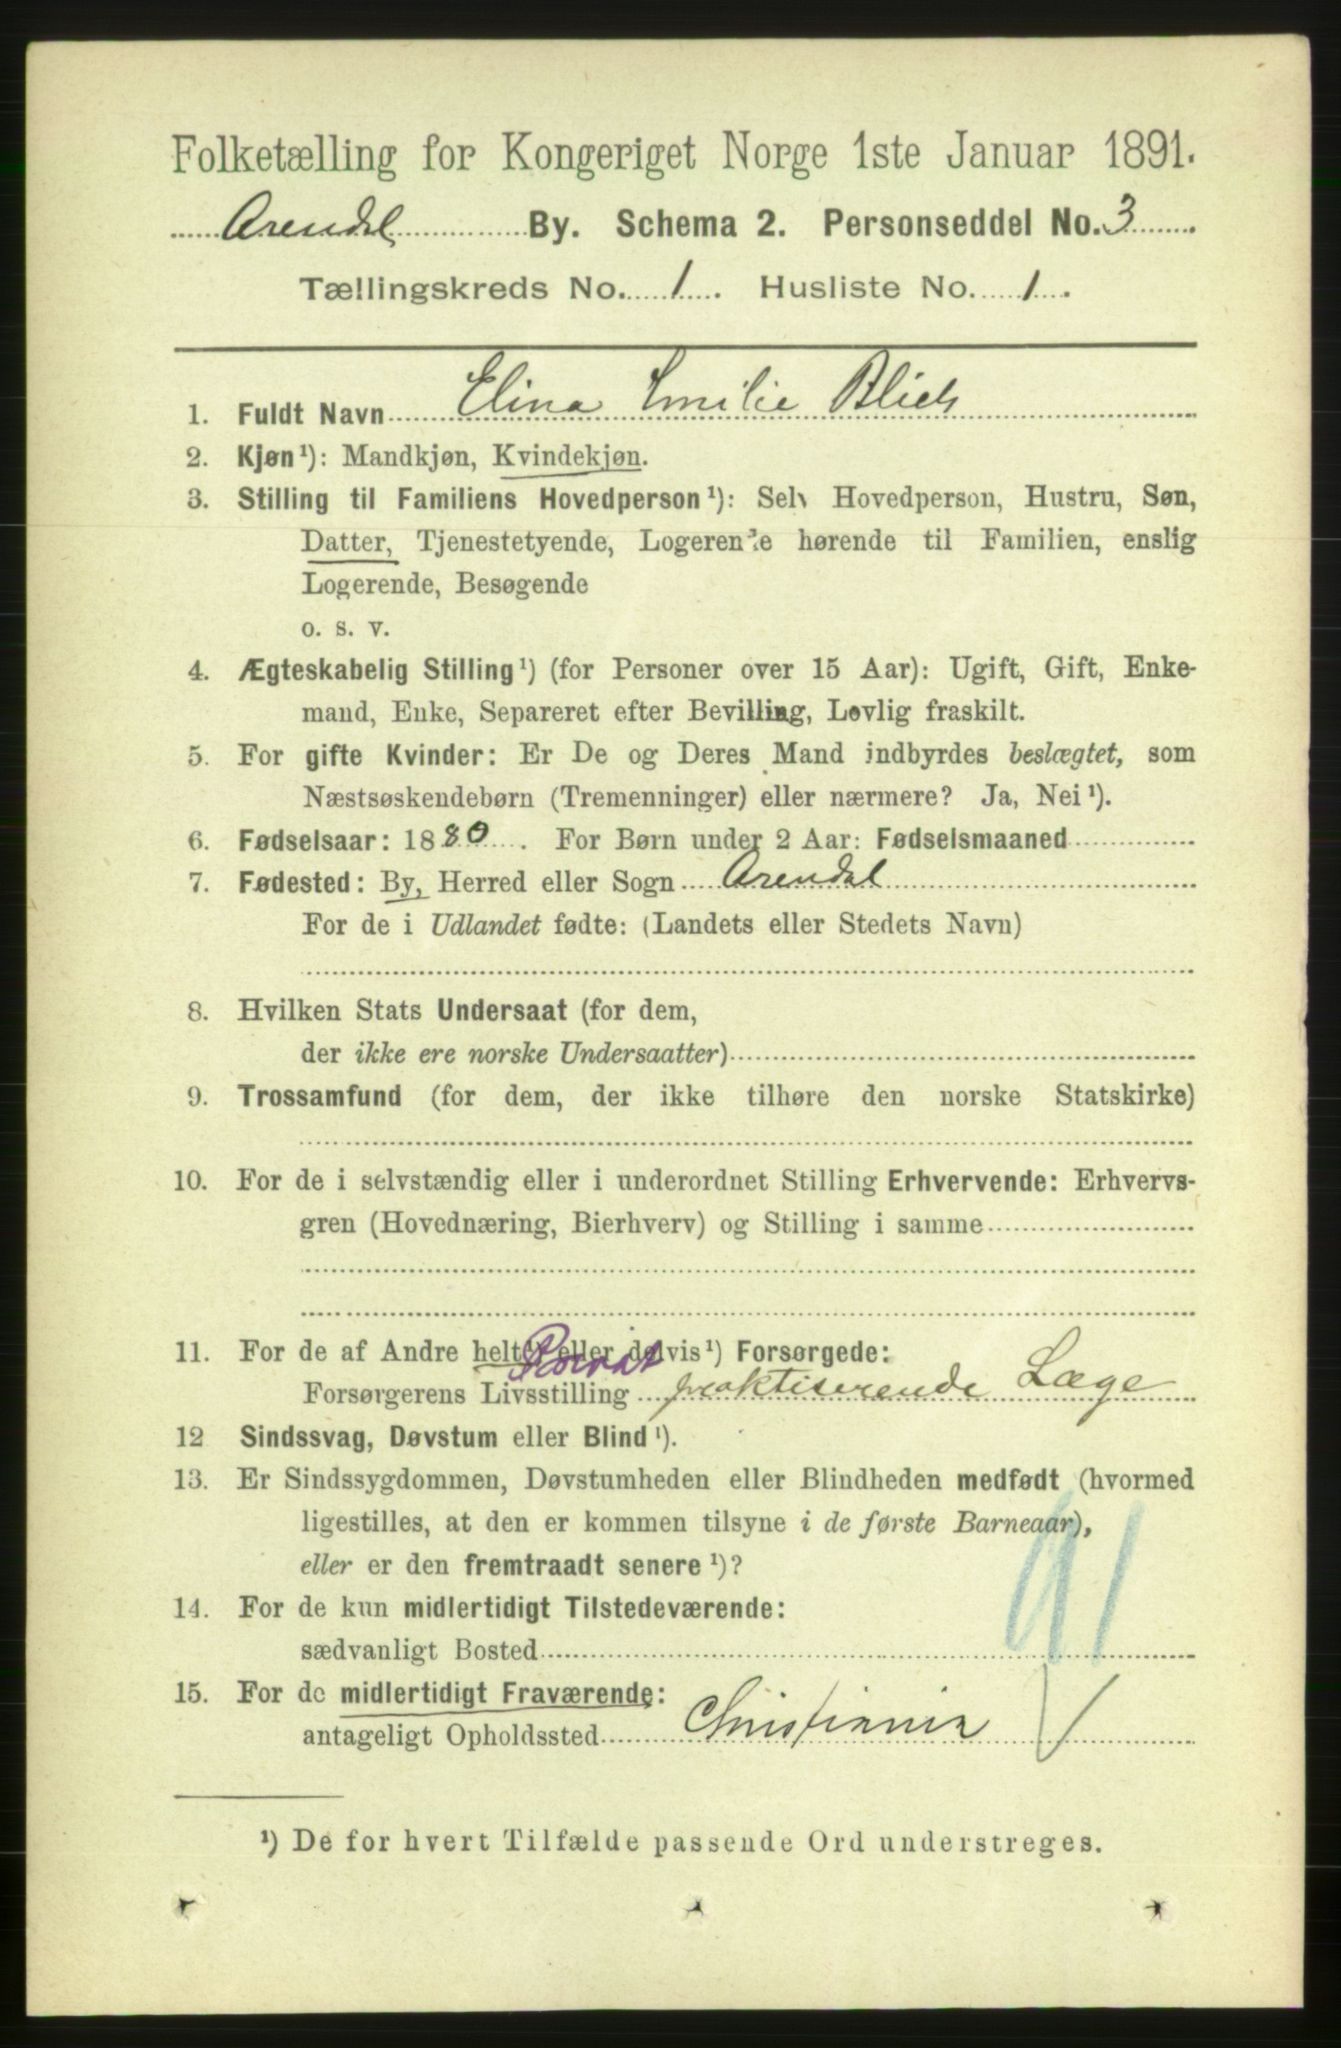 Folketælling for Kongeriget Norge 1ste Januar 1891.
Arendal By. Schema 2. Personseddel No. 3
Tællingskreds No. 1. Husliste No. 1.
1. Fuldt Navn Elina Emilie Blich
2. Kjøn¹): Mandkjøn, Kvindekjøn.
3. Stilling til Familiens Hovedperson¹): Selv Hovedperson, Hustru, Søn,
Datter, Tjenestetyende, Logerende hørende til Familien, enslig
Logerende, Besøgende
o. s. v.
4. Ægteskabelig Stilling¹) (for Personer over 15 Aar): Ugift, Gift, Enke-
mand, Enke, Separeret efter Bevilling, Lovlig fraskilt.
5. For gifte Kvinder: Er De og Deres Mand indbyrdes beslægtet, som
Næstsøskendebørn (Tremenninger) eller nærmere? Ja, Nei¹).
6. Fødselsaar: 1880. For Børn under 2 Aar: Fødselsmaaned
7. Fødested: By, Herred eller Sogn Arendal
For de i Udlandet fødte: (Landets eller Stedets Navn)
8. Hvilken Stats Undersaat (for dem,
der ikke ere norske Undersaatter)
9. Trossamfund (for dem, der ikke tilhøre den norske Statskirke)
10. For de i selvstændig eller i underordnet Stilling Erhvervende: Erhvervs-
gren (Hovednæring, Bierhverv) og Stilling i samme
11. For de af Andre helt¹) eller delvis¹) Forsørgede:
Privat
Forsørgerens Livsstilling praktiserende Læge
12 Sindssvag, Døvstum eller Blind¹).
13. Er Sindssygdommen, Døvstumheden eller Blindheden medfødt (hvormed
ligestilles, at den er kommen tilsyne i de første Barneaar),
eller er den fremtraadt senere¹)?
91
14. For de kun midlertidigt Tilstedeværende:
sædvanligt Bosted
15. For de midlertidigt Fraværende:
antageligt Opholdssted Christiania
¹) De for hvert Tilfælde passende Ord understreges.